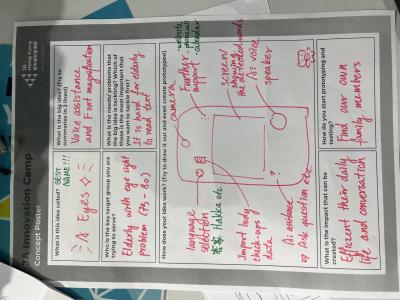 JA Innovation Camp
Concept Poster
JA
Hong Kong
What is this idea called?
BEST
NAME!!!
A Eyes
What is the big idea? (Try to
summarize in 2 lines!)
Voice assistance
and Font magnification
Who is the key target group you are
trying to serve?
Elderly with eye sight
problem (75 - 80)
What is the needs/problems that
the big idea is tackling? Which of
those is the most important that
you want to tackle first?
It is hard for elderly
to read text
How does your idea work? (Try to draw it out and even create prototypes!)
camera
Further
support
website
physical
calendar
Screen/
showing
the detected words
Ai voice
speaker
language
selection
客家 Hakka etc
Import body
check-ups
data
Ai assistance
⇒ Ask question etc.
What is the impact that can be
created?
Efficient their daily
life and conversation
How do you start prototyping and
testing?
Find our own
family members